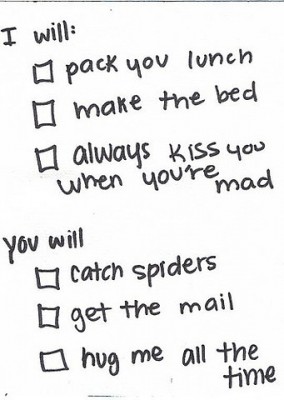 I will:
pack you lunch
make the bed
always kiss you
when you're mad
you will
catch spiders
get the mail
hug me all the
time